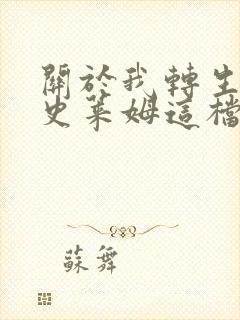 關於我轉生
史萊姆這檔
蘇舞